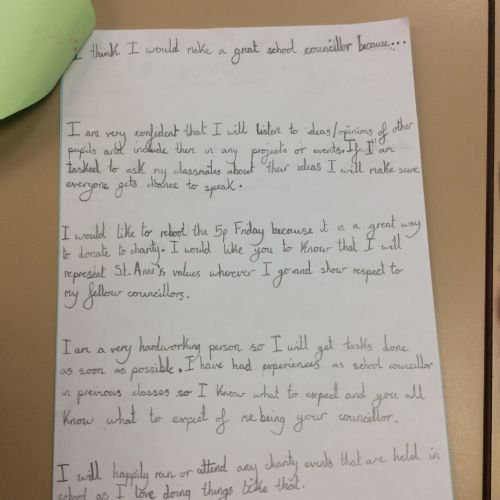 I think I would make a great school councillor because...
I am very confident that I will listen to ideas/opinions of other
pupils and include them in any projects or events. If I am
tasked to ask my classmates about their ideas I will make sure
everyone gets chance to speak.
I would like to reboot the 5p Friday because it is a great way
to donate to charity. I would like you to know that I will
represent St. Anne's values wherever I go and show respect to
my fellow councillors.
I am a very hardworking person so I will get tasks done
as soon as possible. I have had experiences as school councillor
in previous classes so I know what to expect and you all
know what to expect of me being your councillor.
I will happily run or attend any charity events that are held in
school as I love doing things like that.